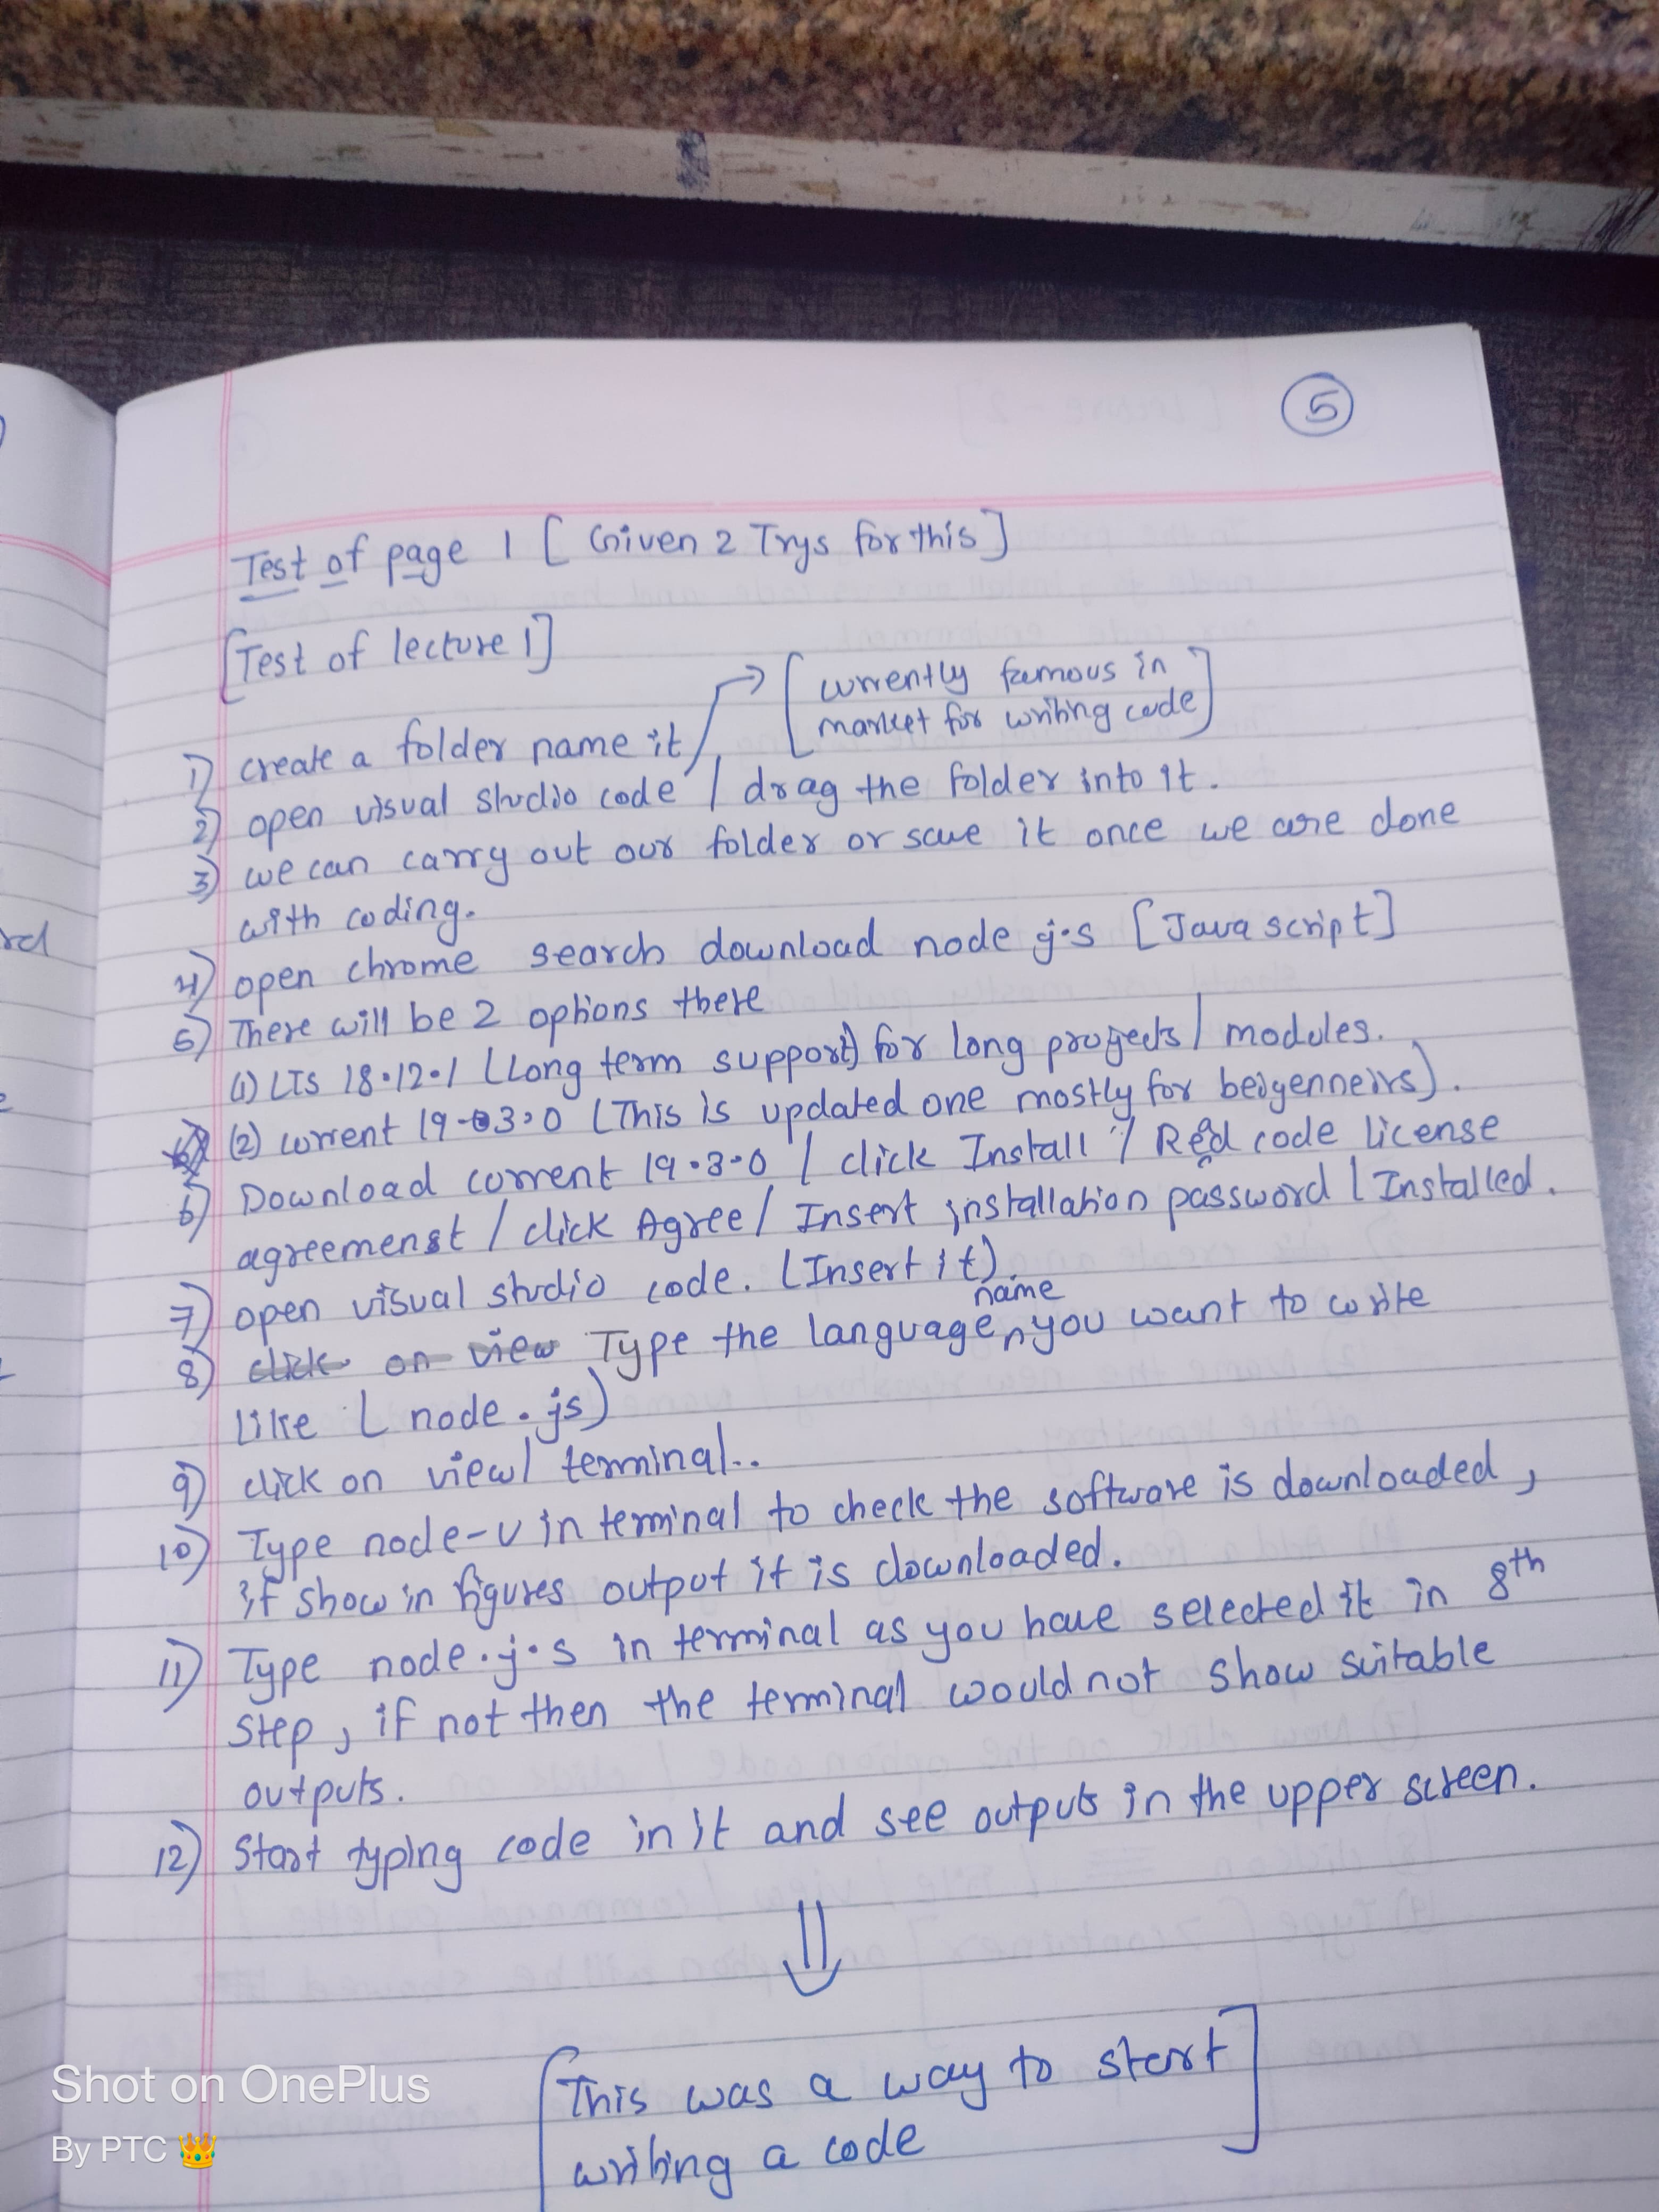 5
Test of page 1 [ Given 2 Trys for this ]
[Test of lecture 1]
→ [ currently famous in
market for writing code ]
1) create a folder name it
2) open visual studio code / drag the folder into it.
3) we can carry out our folder or save it once we are done
with coding.
4) open chrome search download node j.s [Java script]
5) There will be 2 options there
(1) LTS 18.12.1 (Long term support) for long projects / modules.
(2) current 19.03.0 (This is updated one mostly for beigenneirs).
6) Download current 19.3.0 / click Install / Red code license
agreemenst / click Agree / Insert installation password / Installed.
7) open visual studio code. (Insert it)
8) click on view Type the language name you want to write
like ( node.js)
9) click on view / terminal..
10) Type node-v in terminal to check the software is downloaded,
if show in figures output it is downloaded.
11) Type node.j.s in terminal as you have selected it in 8th
step, if not then the terminal would not show suitable
outputs.
12) Start typing code in it and see outputs in the upper screen.
⇓
[This was a way to start
writing a code]
rd
Shot on OnePlus
By PTC 👑